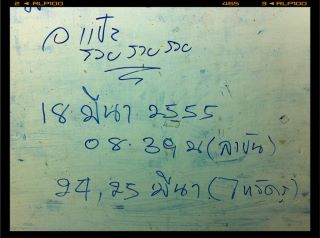 2 ◄ RLP100 465 3 ◄ RLP100
อ แป๊ะ
รวย รวย รวย
18 มีนา 2555
08.39 น (ลาขัน)
24, 25 มีนา (ไหว้ครู)